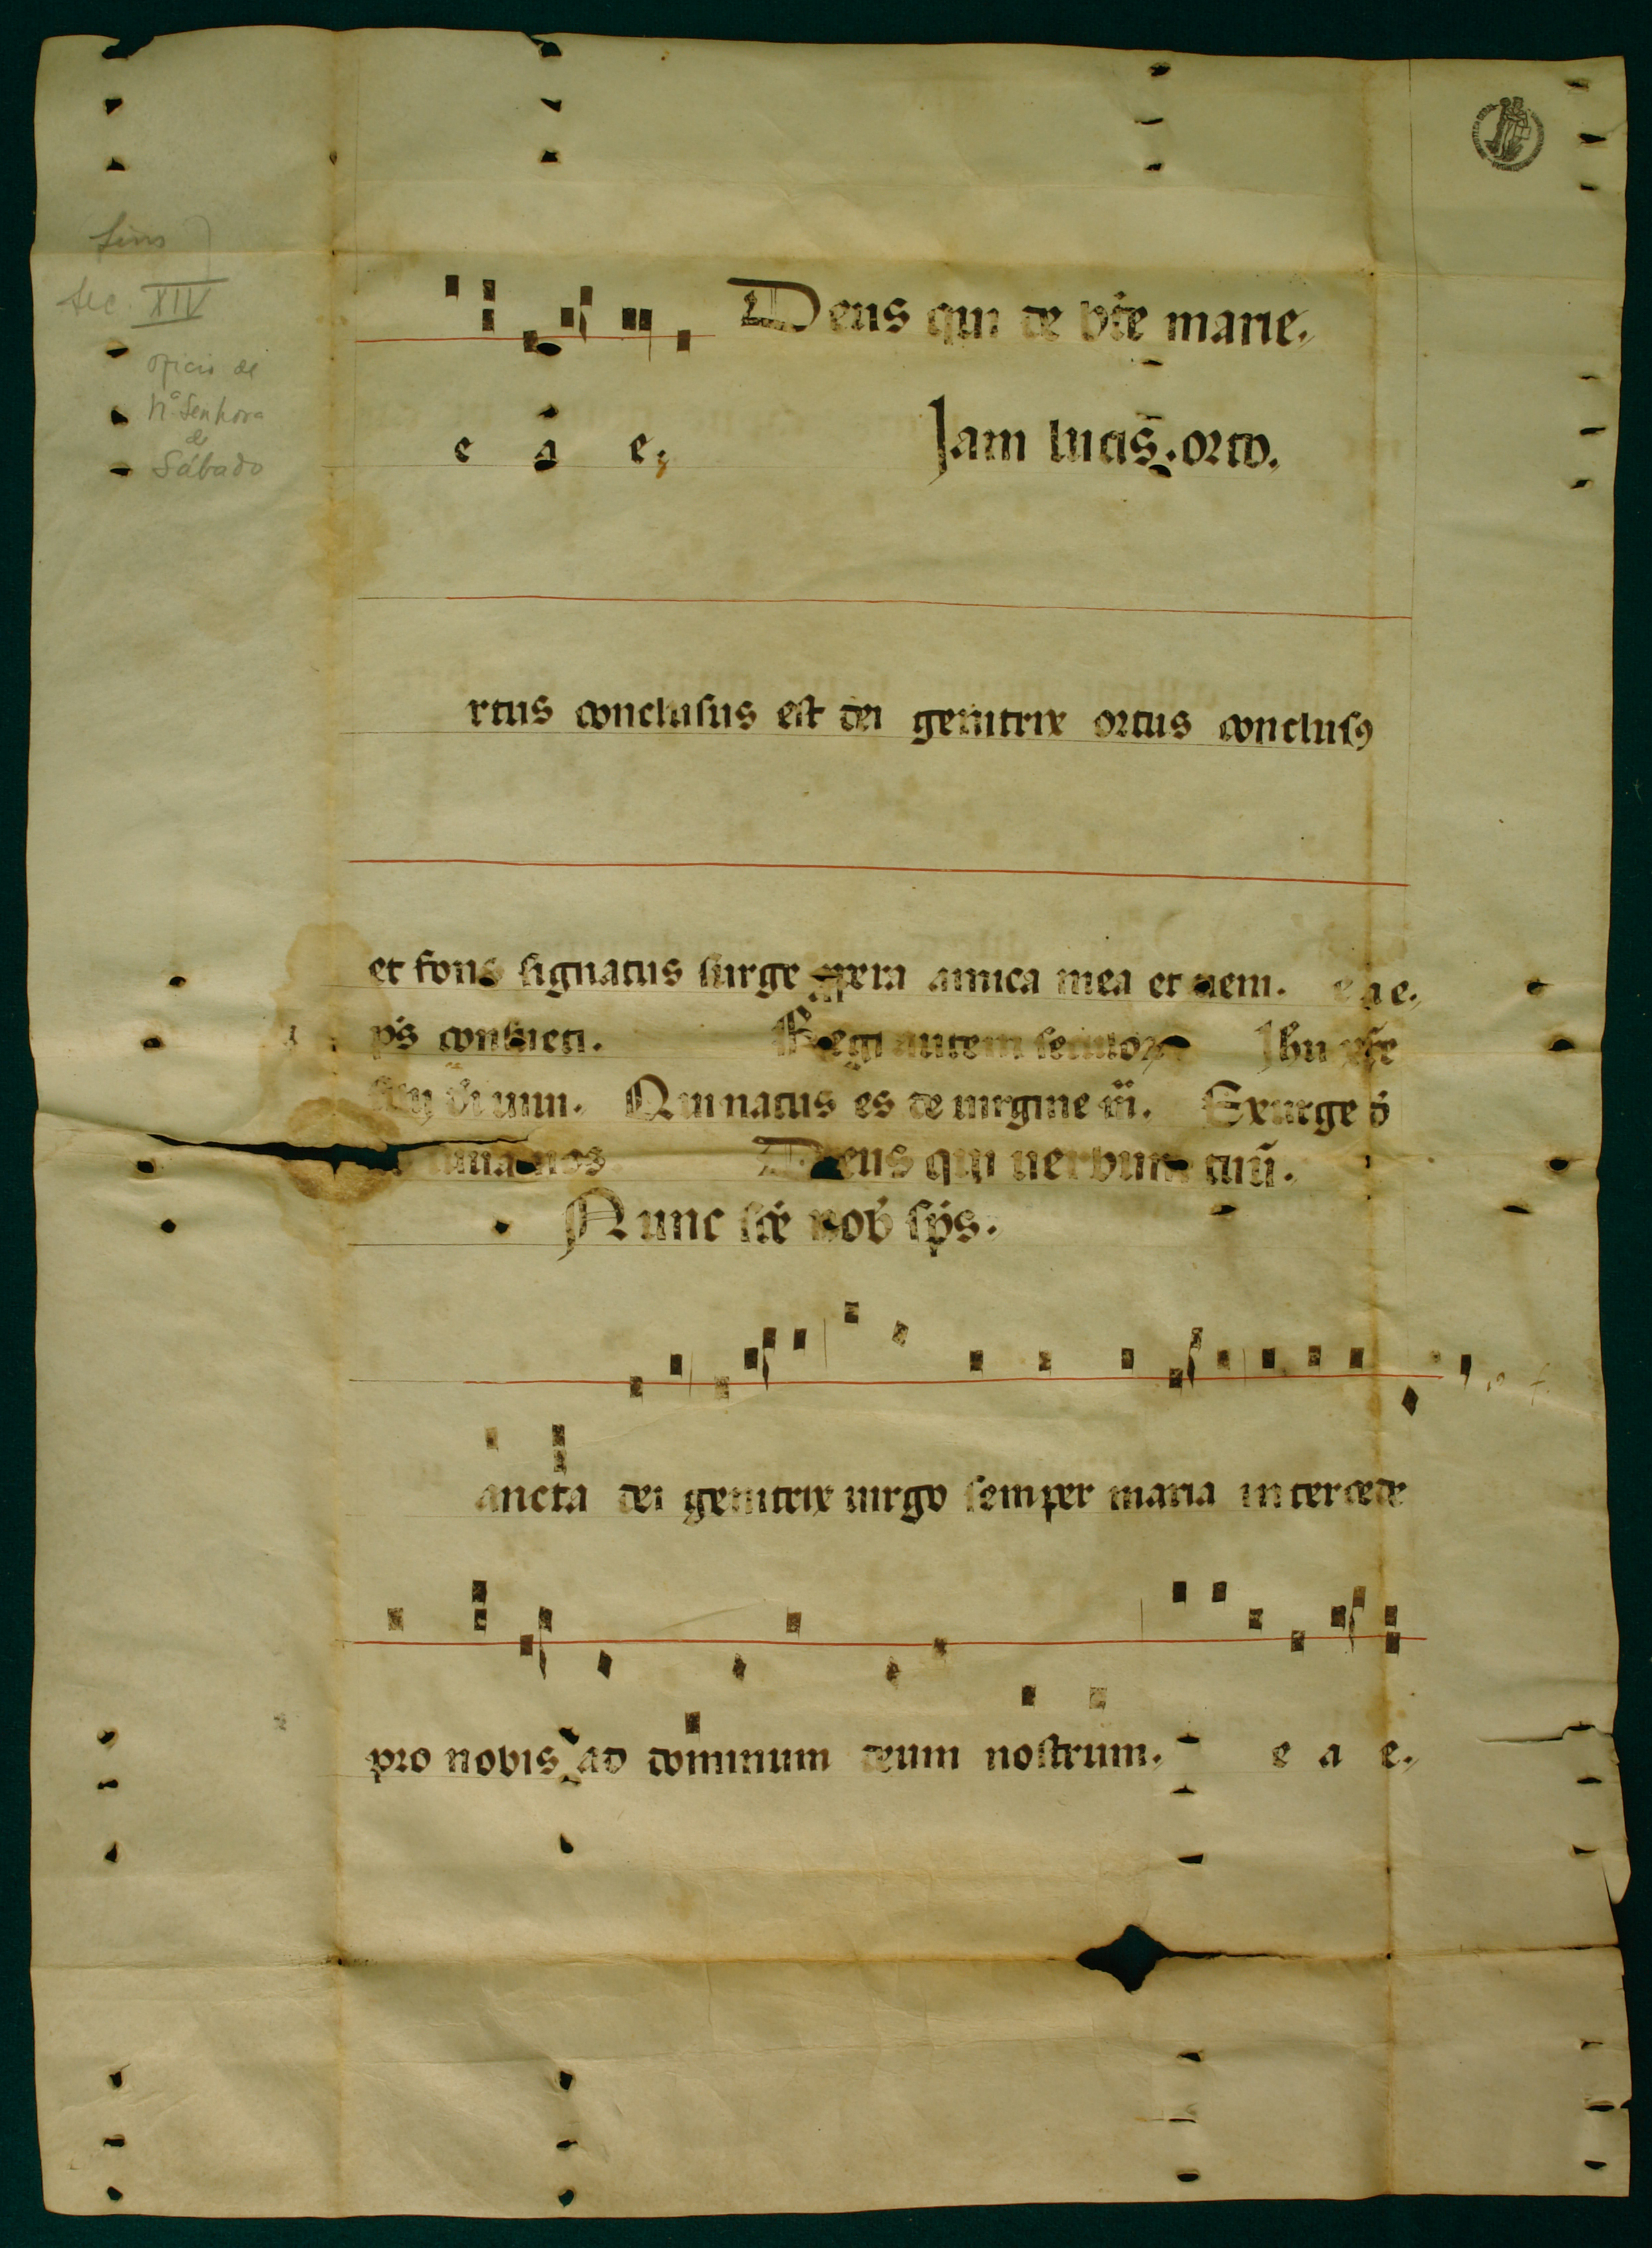 fins
sec. XIV
oficio de
Nª Senhora
de
Sábado
Deus qui de bt̃e marie.
e a e.
Jam lucis. orto.
rtus conclusus est dei genitrix ortus conclusꝰ
et fons signatus surge ꝓpera amica mea et ueni. e a e.
p̃s conuerti. Regi autem seculoꝝ Jhu xp̃e
uiui. Qui natus es de uirgine ui. Exurge
nos Deus qui uerbum tuũ.
Nunc sc̃e nob̃ sp̃s.
ancta dei genitrix uirgo semper maria intercede
pro nobis ad dominum deum nostrum. e a e.